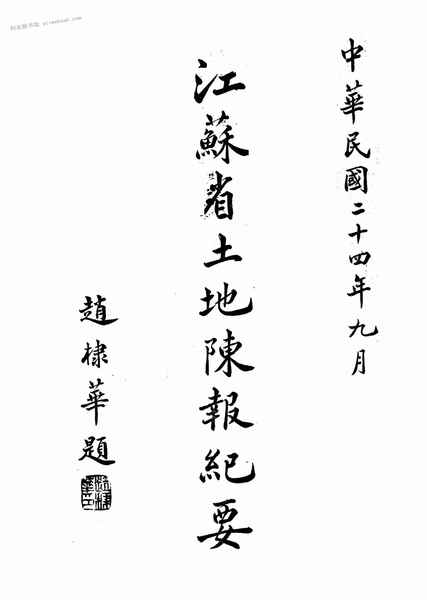 中華民國二十四年九月
江蘇省土地陳報紀要
趙棣華題